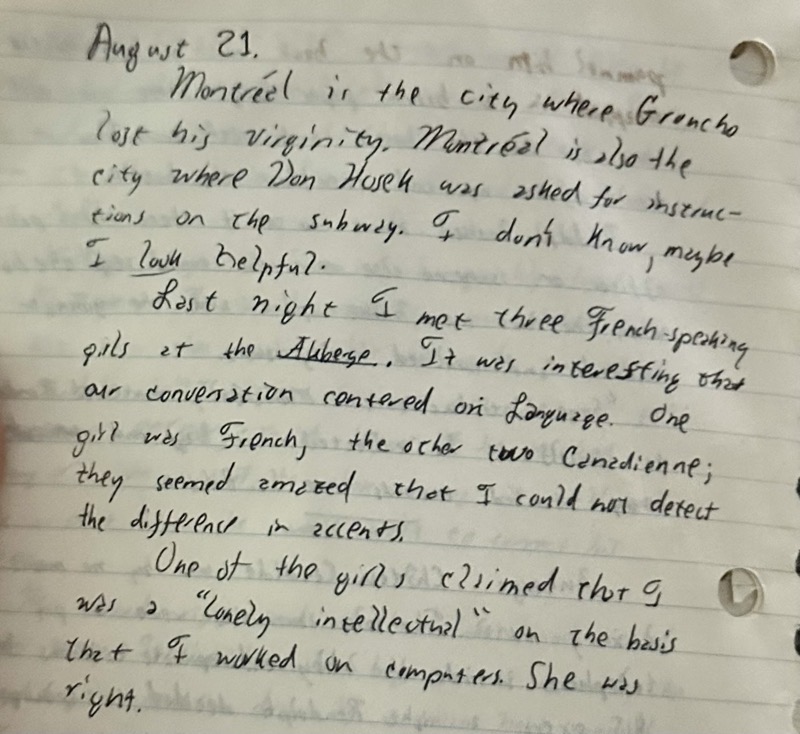 August 21.
Montréal is the city where Groucho
lost his virginity. Montréal is also the
city where Don Hosek was asked for instruc-
tions on the subway. I don't know, maybe
I look helpful.
Last night I met three French-speaking
girls at the Auberge. It was interesting that
our conversation centered on language. One
girl was French, the other two Canadienne;
they seemed amazed that I could not detect
the difference in accents.
One of the girls claimed that I
was a "lonely intellectual" on the basis
that I worked on computers. She was
right.